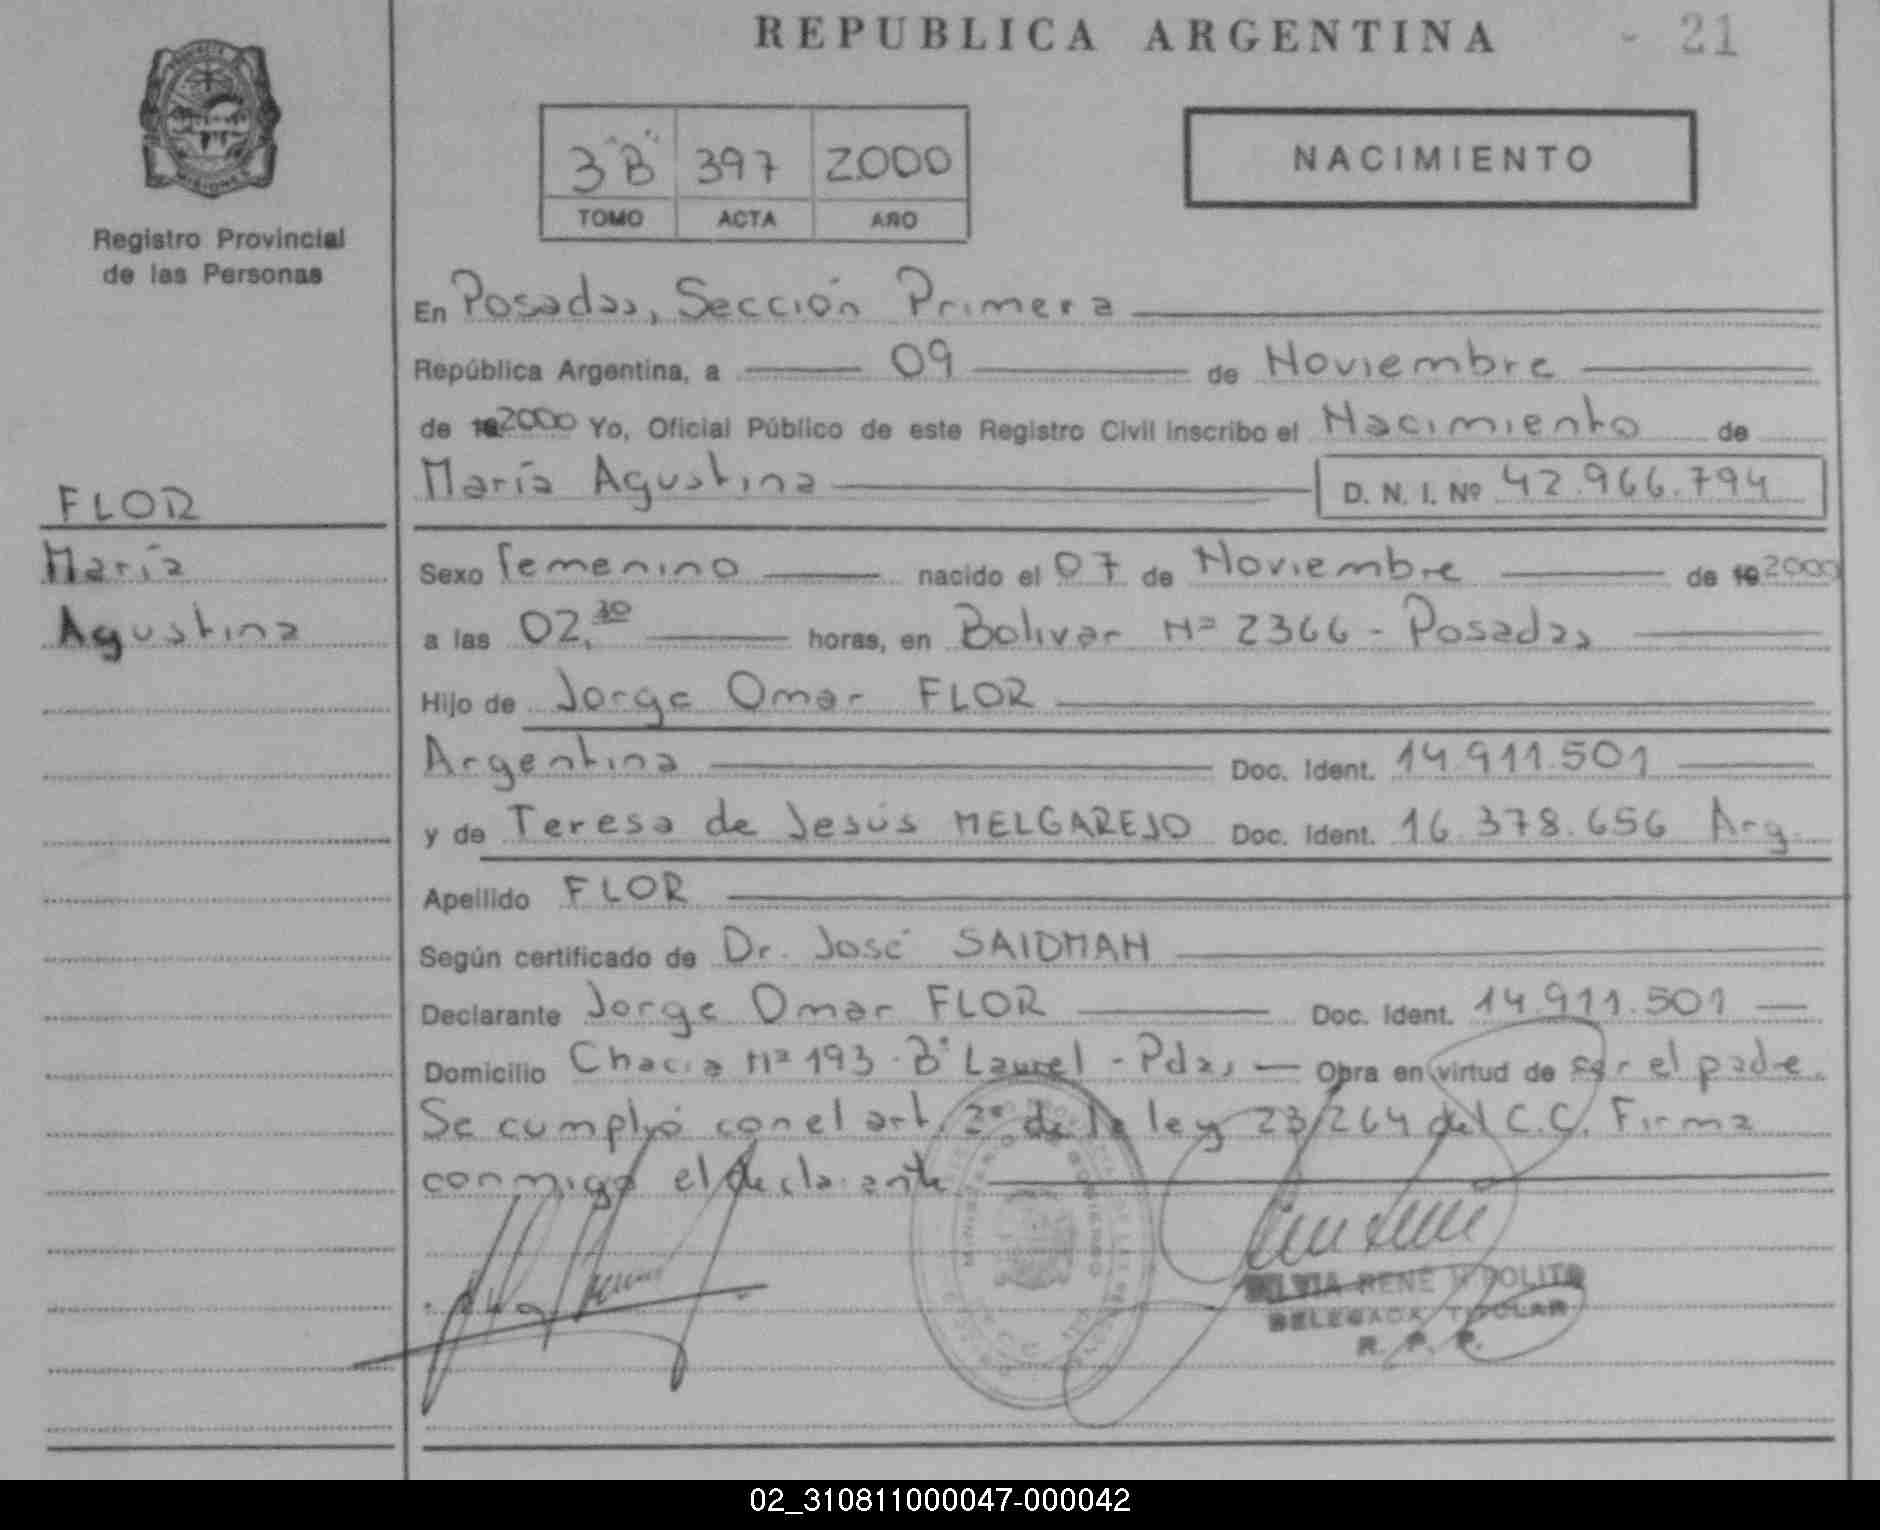 REPUBLICA ARGENTINA - 21
PROVINCIA
MISIONES
Registro Provincial
de las Personas
3 "B" 397 2000
TOMO ACTA AÑO
NACIMIENTO
En Posadas, Sección Primera
República Argentina, a 09 de Noviembre
de 19 2000 Yo, Oficial Público de este Registro Civil inscribo el Nacimiento de
María Agustina D. N. I. Nº 42.966.794
FLOR
María
Agustina
Sexo femenino nacido el 07 de Noviembre de 19 2000
a las 02,30 horas, en Bolivar Nº 2366 - Posadas
Hijo de Jorge Omar FLOR
Argentina Doc. Ident. 14.911.501
y de Teresa de Jesús MELGAREJO Doc. Ident. 16.378.656 Arg.
Apellido FLOR
Según certificado de Dr. José SAIDMAN
Declarante Jorge Omar FLOR Doc. Ident. 14.911.501
Domicilio Chacra Nº 193 - Bº Laurel - Pdas, Obra en virtud de ser el padre.
Se cumplió con el art. 2º de la ley 23264 del C.C. Firma
conmigo el declarante
MINISTERIO DE GOBIERNO
SILVIA RENE HIPOLITO
DELEGADA TITULAR
R. P. P.
02_310811000047-000042